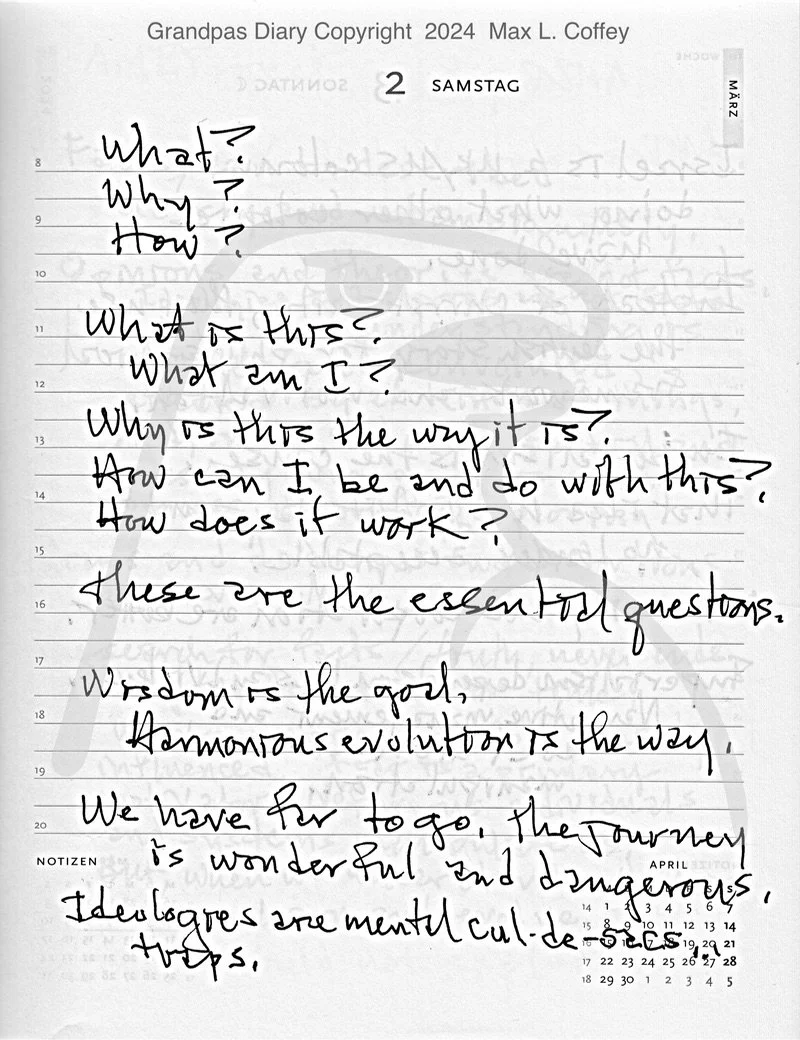 Grandpas Diary Copyright 2024 Max L. Coffey
2 SAMSTAG
MÄRZ
What?
8
Why?
9
How?
10
11
What is this?
What am I?
12
Why is this the way it is?
13
How can I be and do with this?
14
How does it work?
15
These are the essential questions.
16
17
Wisdom is the goal,
18
Harmonious evolution is the way.
19
We have far to go. The Journey
20
is wonderful and dangerous.
NOTIZEN
APRIL
Ideologies are mental cul-de-sacs...
traps.
14 1 2 3 4 5 6 7
15 8 9 10 11 12 13 14
19 20 21
17 22 23 24 25 26 27 28
18 29 30 1 2 3 4 5